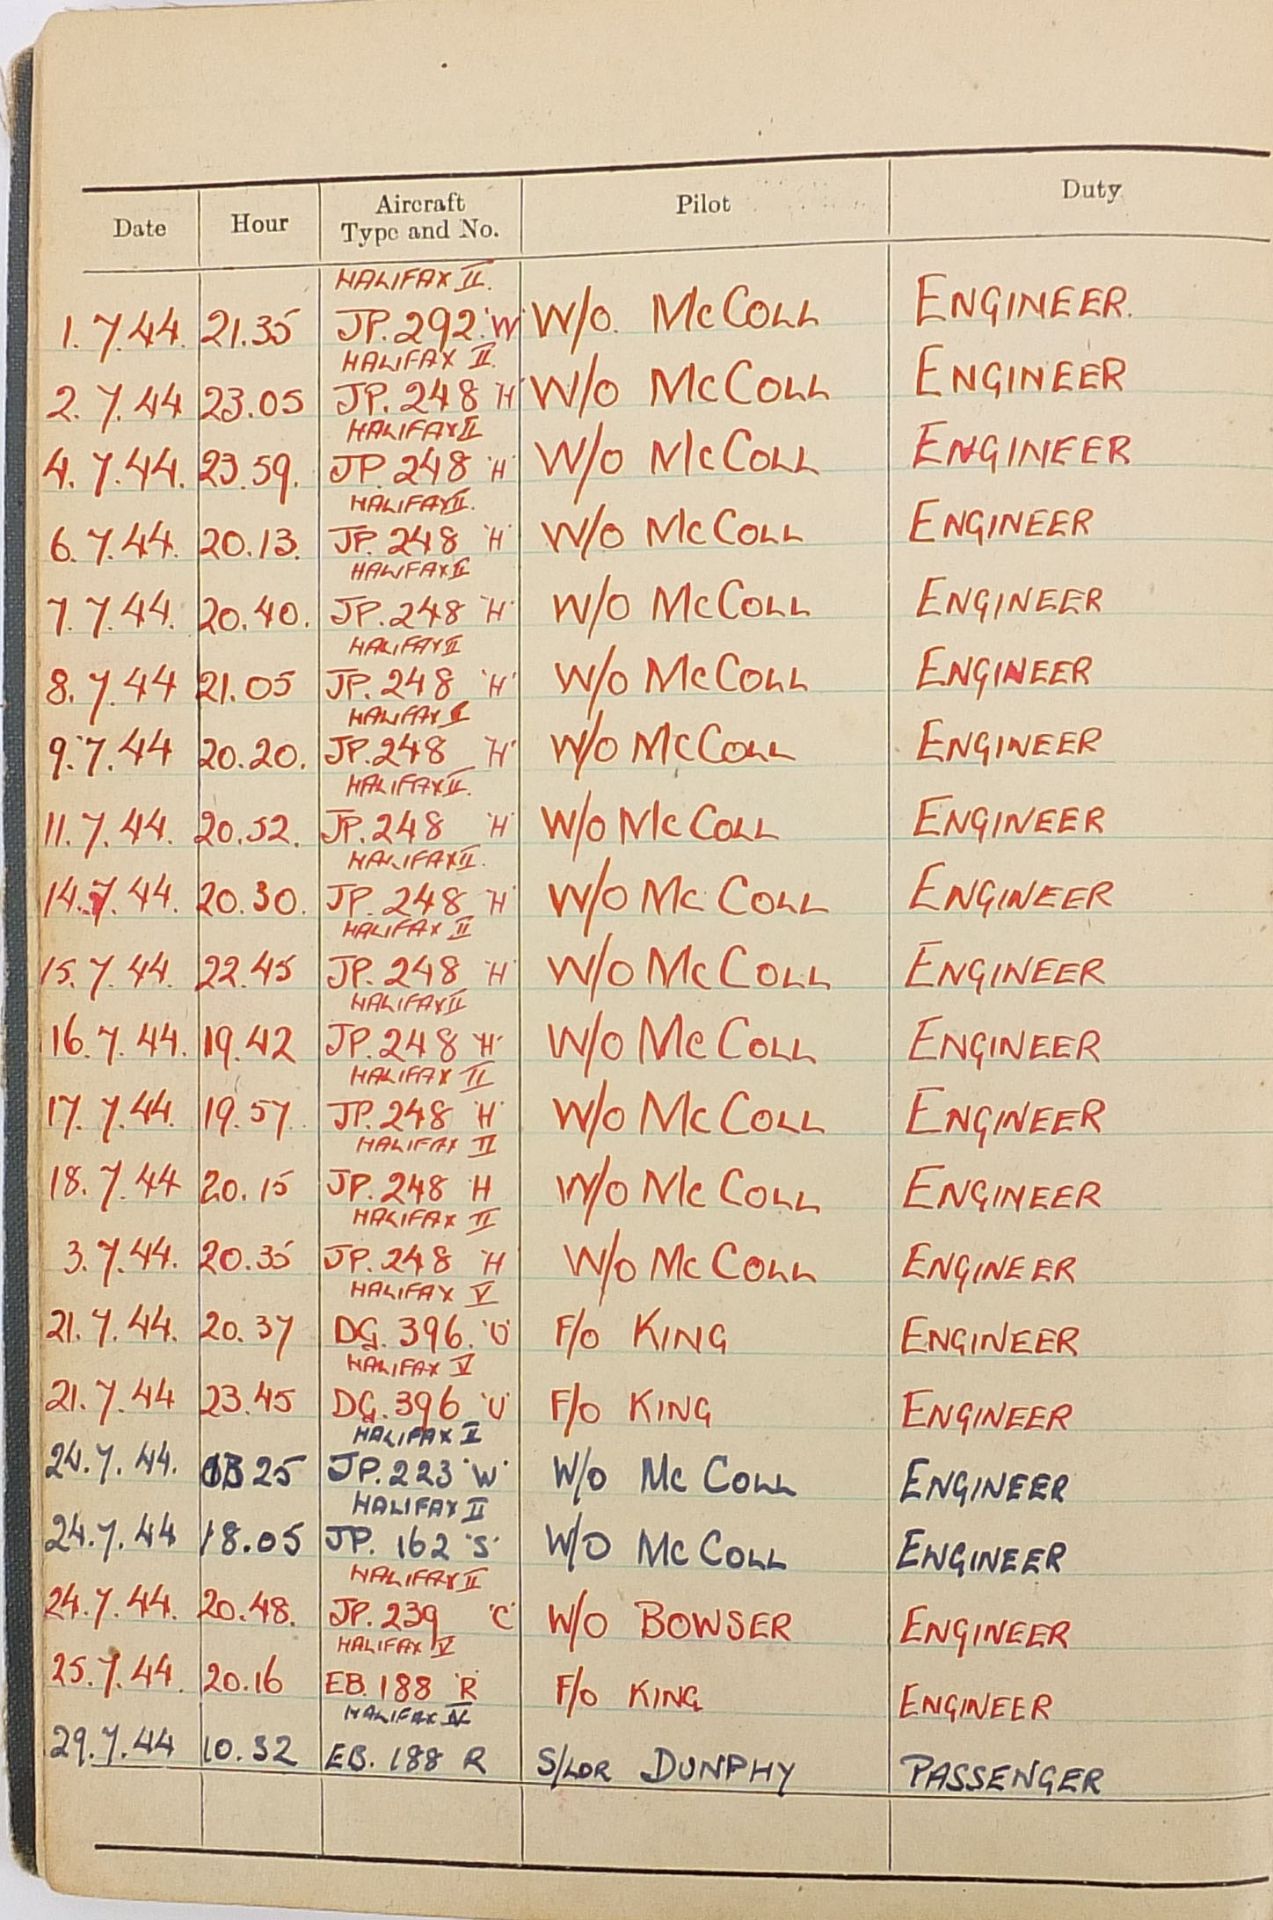 Date Hour Aircraft Type and No. Pilot Duty
HALIFAX II.
1.7.44. 21.35 JP.292 'W' W/O. McCOLL ENGINEER.
HALIFAX II.
2.7.44 23.05 JP.248 'H' W/O McCOLL ENGINEER
HALIFAX II
4.7.44. 23.59. JP.248 'H' W/O McCOLL ENGINEER
HALIFAX II.
6.7.44. 20.13. JP.248 'H' W/O McCOLL ENGINEER
HALIFAX II
7.7.44. 20.40. JP.248 'H' W/O McCOLL ENGINEER
HALIFAX II
8.7.44 21.05 JP.248 'H' W/O McCOLL ENGINEER
HALIFAX
9.7.44 20.20. JP.248 'H' W/O McCOLL ENGINEER
HALIFAX II.
11.7.44. 20.52. JP.248 'H' W/O McCOLL ENGINEER
HALIFAX II.
14.7.44. 20.30. JP.248 'H' W/O McCOLL ENGINEER
HALIFAX II
15.7.44. 22.45 JP.248 'H' W/O McCOLL ENGINEER
HALIFAX II
16.7.44. 19.42 JP.248 'H' W/O McCOLL ENGINEER
HALIFAX II
17.7.44. 19.57 JP.248 'H' W/O McCOLL ENGINEER
HALIFAX II
18.7.44 20.15 JP.248 H W/O McCOLL ENGINEER
HALIFAX II
3.7.44. 20.35 JP.248 'H W/O McCOLL ENGINEER
HALIFAX V
21.7.44. 20.37 DG.396. 'U' F/O KING ENGINEER
HALIFAX V
21.7.44 23.45 DG.396 'U' F/O KING ENGINEER
HALIFAX II
24.7.44. 25 JP.223 'W' W/O McCOLL ENGINEER
HALIFAX II
24.7.44 18.05 JP.162 'S' W/O McCOLL ENGINEER
HALIFAX II
24.7.44. 20.48. JP.239 'C' W/O BOWSER ENGINEER
HALIFAX V
25.7.44. 20.16 EB.188 'R' F/O KING ENGINEER
HALIFAX
29.7.44 10.32 EB.188 R S/LDR DUNPHY PASSENGER